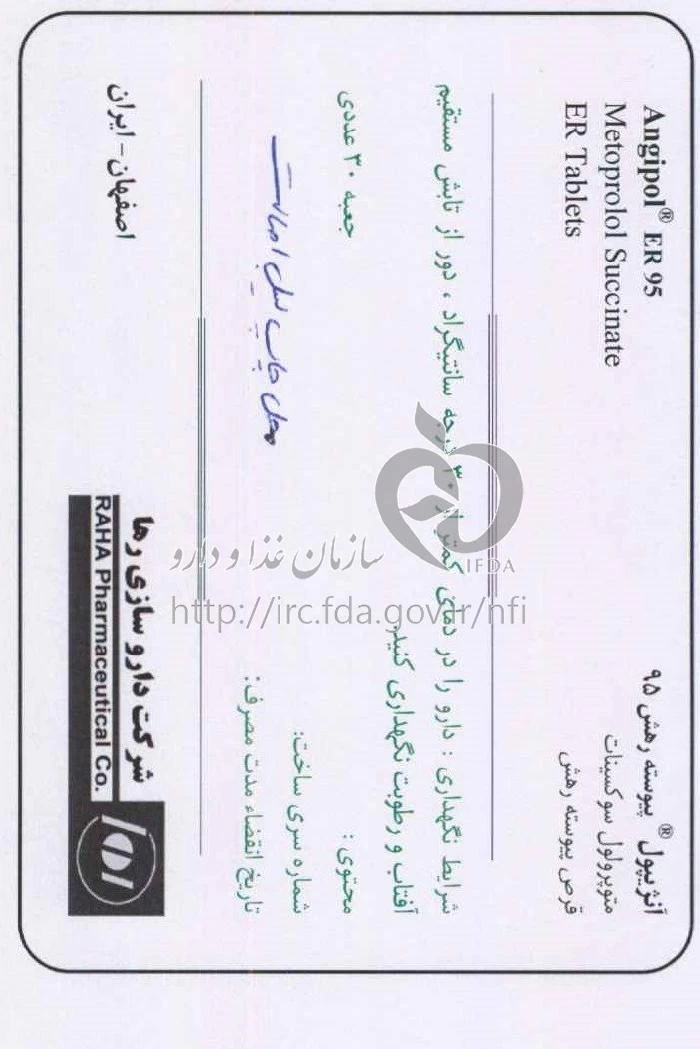 Angipol® ER 95
Metoprolol Succinate
ER Tablets
آنژیپول® پیوسته رهش ۹۵
متوپرولول سوکسینات
قرص پیوسته رهش
شرایط نگهداری : دارو را در دمای کمتر از ۳۰ درجه سانتیگراد ، دور از تابش مستقیم
آفتاب و رطوبت نگهداری کنید.
محتوی : جعبه ۳۰ عددی
شماره سری ساخت:
تاریخ انقضاء مدت مصرف:
محل چاپ لیبل اصالت
شرکت دارو سازی رها
RAHA Pharmaceutical Co.
اصفهان - ایران
IFDA
سازمان غذا و دارو
http://irc.fda.gov.ir/nfi